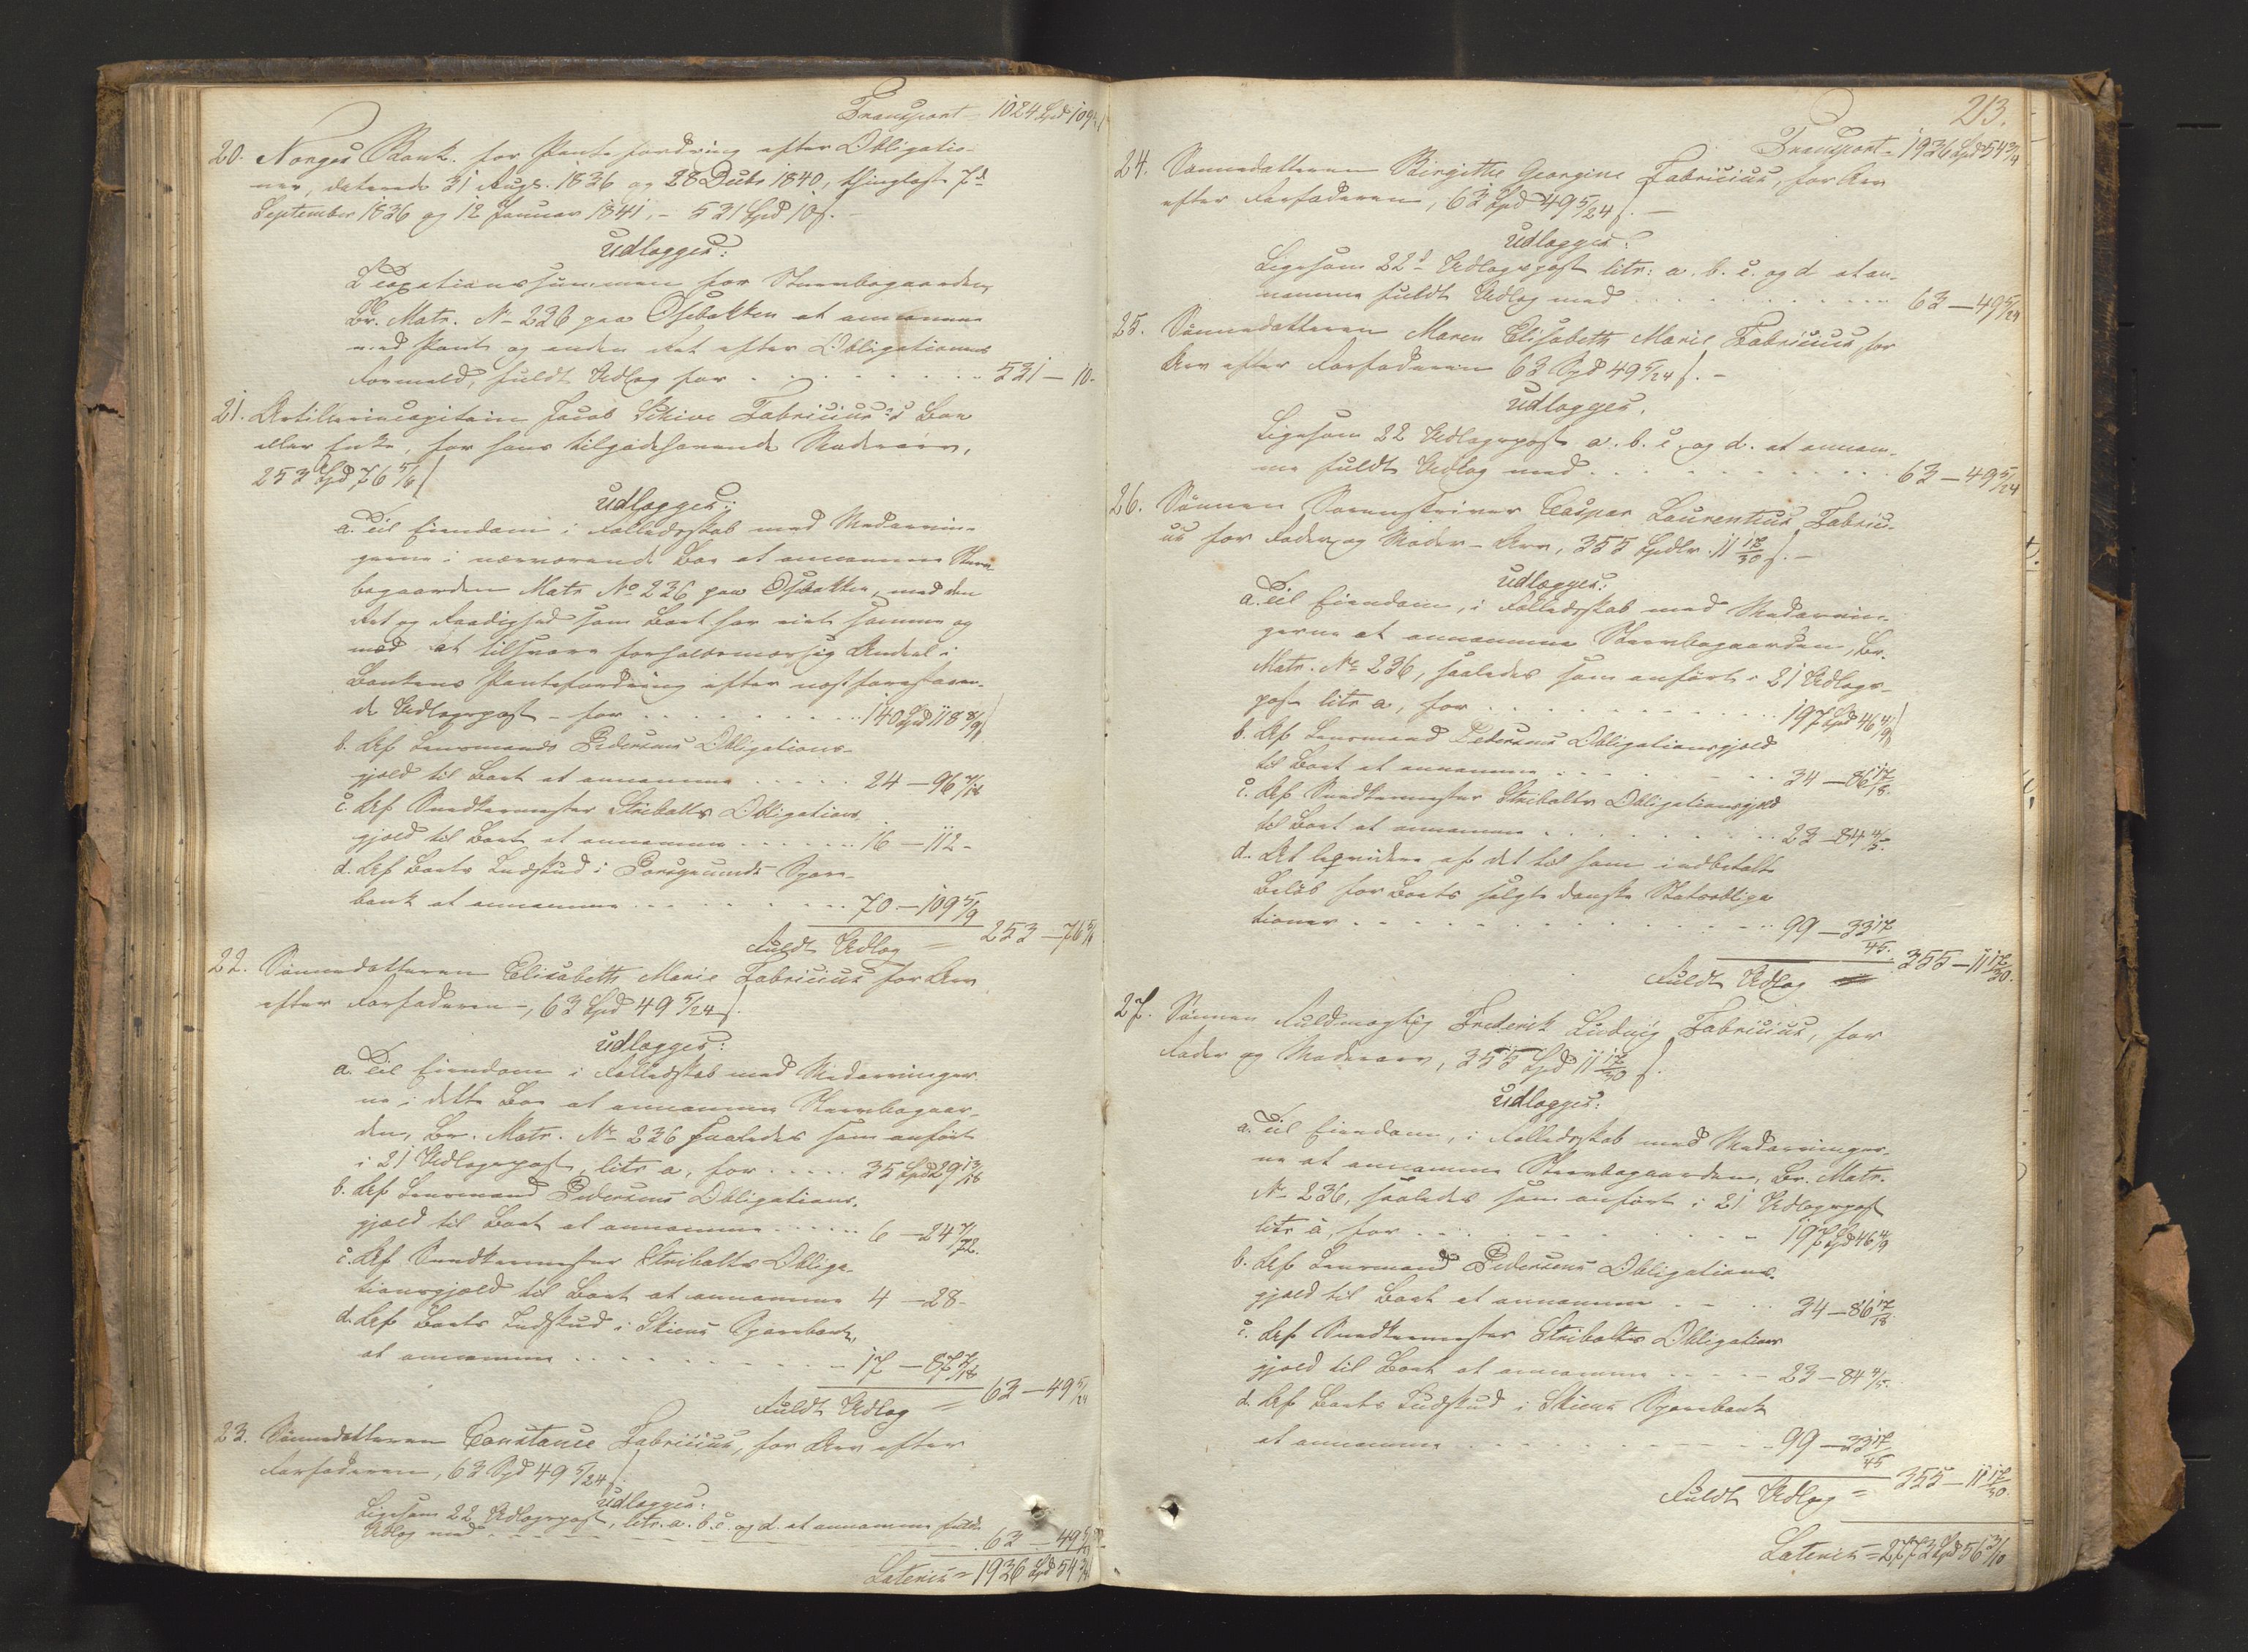 Transport - 1024 Spd 109
20. Norges Bank. for Pantefordring efter Obligatio-
ner, daterede 31 Augs. 1836 og 28 Decbr 1840, thinglæst 7d
September 1836 og 12 Januar 1841, - 531 Spd 10 s. -
udlægges:
I Taxationssummen for Steenbogaarden,
Br. Matr. No 236 paa Osebakken at annamme
med Pant og anden Ret efter Obligationens
Formeld, fuldt Udlæg for . . . . . . . . 531 - 10.
21. Artillericapitain Jacob Schive Fabricius's Boe
eller Enke, for hans tilgodehavende Mødrearv,
253 Spd 76 5/6 s
udlægges:
a. Til Eiendom i Fælledsskab med Medarvin-
gerne i nærværende Boe at annamme Steen-
bogaarden Matr No 236 paa Osebakken, med den
Ret og Raadighed som Boet har eiet samme og
med at tilsvare forholdsmæssig Andeel i
Bankens Pantefordring efter næstforestaaen-
de Udlægspost - for . . . . . . . . 140 Spd 118 8/9 s
b. Af Lensmand Pedersens Obligations-
gjæld til Boet at annamme . . . . . 24 - 96 7/18
c. Af Snedkermester Stribolts Obligations
gjæld til Boet at annamme . . . . . . 16 - 112 -
d. Af Boets Indskud i Porsgrunds Spare-
bank at annamme . . . . . . . . 70 - 109 5/9
Fuldt Udlæg = 253 - 76 5/6
22. Sønnedatteren Elisabeth Marie Fabricius for Arv
efter Farfaderen -, 63 Spd 49 5/24 s.
udlægges:
a. Til Eiendom i Fælledsskab med Medarvinger-
ne i dette Boe at annamme Steenbogaar-
den, Br. Matr. No 236 saaledes som anført
i 21 Udlægspost, litr a, for . . . . . 35 Spd 29 13/18
b. Af Lensmand Pedersens Obligations-
gjæld til Boet at annamme . . . . . . 6 - 24 7/72.
c. Af Snedkermester Stribolts Obliga-
tionsgjæld til Boet at annamme 4 - 28 -
d. Af Boets Indskud i Skiens Sparebank,
at annamme . . . . . . . . . . . . - 17 - 87 7/18
Fuldt Udlæg = 63 - 49 5/24
23. Sønnedatteren Constance Fabricius, for Arv efter
Farfaderen, 63 Spd 49 5/24 s.
udlægges:
Ligesom 22 Udlægspost, litr. a. b. c. og d. at annamme fuldt
Udlæg med - - - - - - - - - - - 63 - 49 5/24
Lateris = 1936 Spd 54 3/4
213.
Transport - 1936 Spd 54 3/4
24. Sønnedatteren Birgitte Georgine Fabricius, for Arv
efter Farfaderen, 63 Spd 49 5/24 s. -
udlægges:
Ligesom 22d Udlægspost litr: a. b. c. og d at an-
namme fuldt Udlæg med . . . . . . . . . . . 63 - 49 5/24
25. Sønnedatteren Maren Elisabeth Marie Fabricius, for
Arv efter Farfaderen 63 Spd 49 5/24 s. -
udlægges.
Ligesom 22 Udlægspost a. b. c og d. at annam-
me fuldt Udlæg med . . . . . . . . . . . . 63 - 49 5/24
26. Sønnen Sorenskriver Caspar Laurentius Fabrici-
us for Fader og Moder-Arv, 355 Spdlr. 11 17/30 s. -
udlægges:
a. Til Eiendom, i Fælledsskab med Medarvin-
gerne at annamme Steenbogaarden, Br.
Matr. No 236, saaledes som anført i 21 Udlægs-
post litr a, for . . . . . . . . . . . . . 197 Spd 46 4/9 s
b. Af Lensmand Pedersens Obligationsgjæld
til Boet at annamme . . . . . . . . 34 - 86 17/18.
c. Af Snedkermester Stribolts Obligationsgjæld
til Boet at annamme . . . . . . . . . . 23 - 84 4/5.
d. At liqvidere af det til ham indbetalte
Beløb for Boets solgte danske Statsobliga
tioner . . . . . . . . . . . . . . . . . 99 - 33 17/45.
Fuldt Udlæg = 355 - 11 17/30.
27. Sønnen Fuldmægtig Frederik Ludvig Fabricius, for
Fader og Moderarv, 355 Spd 11 17/30 s.
udlægges:
a. Til Eiendom, i Fælledsskab med Medarvinger-
ne at annamme Steenbogaarden, Br. Matr.
No 236, saaledes som anført i 21 Udlægspost
litr a, for . . . . . . . . . . . . - 197 Spd 46 4/9
b. Af Lensmand Pedersens Obligations-
gjæld til Boet at annamme . - . . . 34 - 86 17/18.
c. Af Snedkermester Stribolts Obligations
gjæld til Boet at annamme . . . . - 23 - 84 4/5.
d. Af Boets Indskud i Skiens Sparebank
at annamme . . . . . . . . . . . . - 99 - 33 17/45
Fuldt Udlæg = 355 - 11 17/30.
Lateris = 2773 Spd 56 3/10